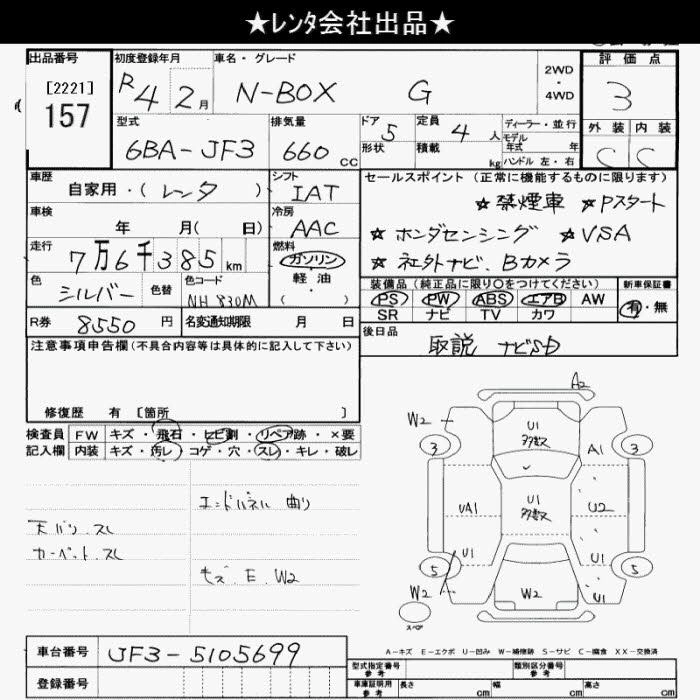 ★レンタ会社出品★
出品番号 初度登録年月 車名・グレード 評価点
[2221] 157 R4 2月 N-BOX G 2WD・4WD 3
型式 排気量 ドア 定員 ディーラー・並行 外装 内装
6BA-JF3 660cc 5 4人 モデル年式 年 C C
形状 積載 kg ハンドル 左・右
車歴 シフト セールスポイント (正常に機能するものに限ります)
自家用・(レンタ) IAT ★禁煙車 ★Pスタート
車検 冷房
年 月( 日) AAC ★ホンダセンシング ★VSA
走行 燃料
7万6千385km ガソリン・軽油・( ) ★社外ナビ、Bカメラ
色 色替 色コード 装備品 (純正品に限り○をつけてください) 新車保証書
シルバー NH830M PS PW ABS エアB AW 有・無
SR ナビ TV カワ
R券 8550円 名変通知期限 月 日 後日品
取説 ナビSD
注意事項申告欄(不具合内容等は具体的に記入して下さい)
修復歴 有 [箇所 ]
検査員 FW キズ・飛石・ヒビ割・リペア跡・×要
記入欄 内装 キズ・汚レ・コゲ・穴・スレ・キレ・破レ
エンドパネル 曲り
天バリ スレ
カーペット スレ
キズ.E.W2
A2
W2 U1 多数
3 A1 3
UA1 U1 多数 U2
U1 U1
5 5
W2 W2 U1
スペア
A-キズ E-エクボ U-凹み W-補修跡 S-サビ C-腐食 XX-交換済
車台番号 JF3-5105699
登録番号
型式指定番号 参考 類別区分番号 参考
車庫証明用 参考 長さ cm 幅 cm 高さ cm